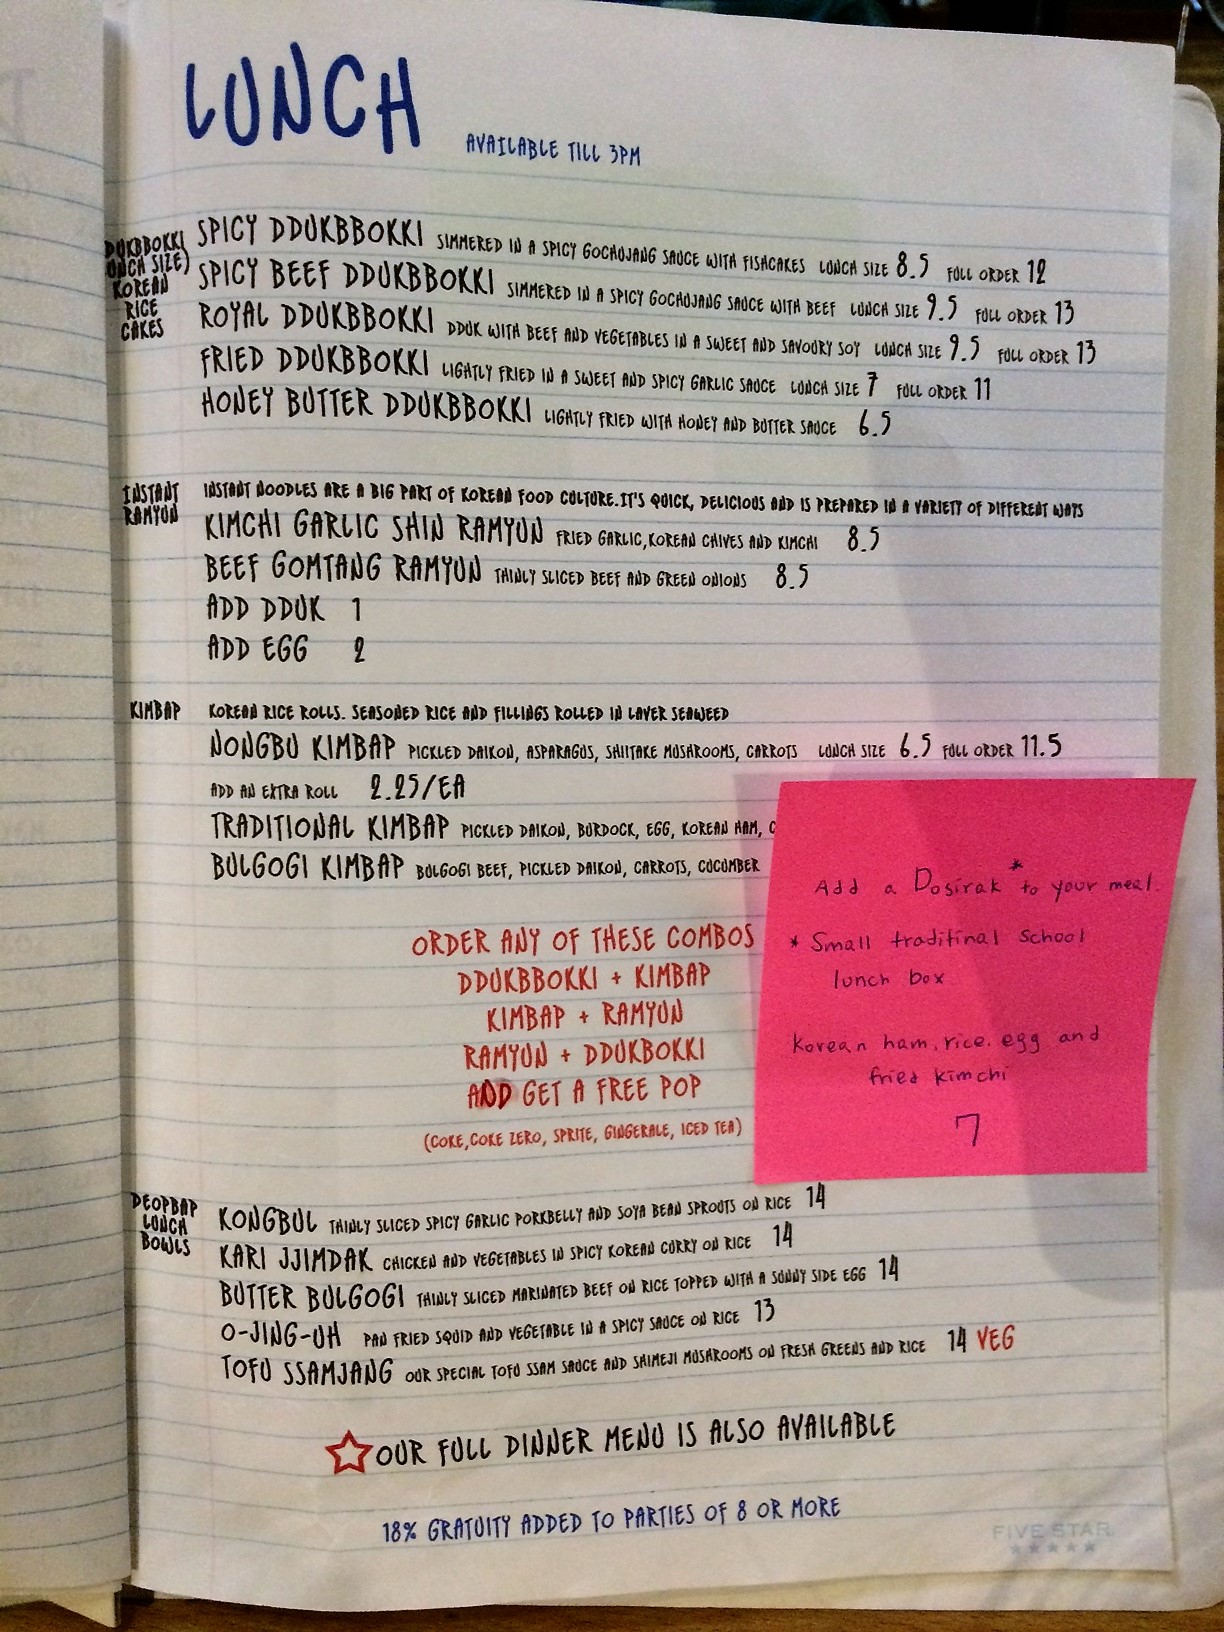 LUNCH AVAILABLE TILL 3PM
DUKBBOKKI
LUNCH SIZE)
KOREAN
RICE
CAKES
SPICY DDUKBBOKKI SIMMERED IN A SPICY GOCHUJANG SAUCE WITH FISHCAKES LUNCH SIZE 8.5 FULL ORDER 12
SPICY BEEF DDUKBBOKKI SIMMERED IN A SPICY GOCHUJANG SAUCE WITH BEEF LUNCH SIZE 9.5 FULL ORDER 13
ROYAL DDUKBBOKKI DDUK WITH BEEF AND VEGETABLES IN A SWEET AND SAVOURY SOY LUNCH SIZE 9.5 FULL ORDER 13
FRIED DDUKBBOKKI LIGHTLY FRIED IN A SWEET AND SPICY GARLIC SAUCE LUNCH SIZE 7 FULL ORDER 11
HONEY BUTTER DDUKBBOKKI LIGHTLY FRIED WITH HONEY AND BUTTER SAUCE 6.5
INSTANT
RAMYUN
INSTANT NOODLES ARE A BIG PART OF KOREAN FOOD CULTURE.IT'S QUICK, DELICIOUS AND IS PREPARED IN A VARIETY OF DIFFERENT WAYS
KIMCHI GARLIC SHIN RAMYUN FRIED GARLIC,KOREAN CHIVES AND KIMCHI 8.5
BEEF GOMTANG RAMYUN THINLY SLICED BEEF AND GREEN ONIONS 8.5
ADD DDUK 1
ADD EGG 2
KIMBAP KOREAN RICE ROLLS. SEASONED RICE AND FILLINGS ROLLED IN LAVER SEAWEED
NONGBU KIMBAP PICKLED DAIKON, ASPARAGUS, SHIITAKE MUSHROOMS, CARROTS LUNCH SIZE 6.5 FULL ORDER 11.5
ADD AN EXTRA ROLL 2.25/EA
TRADITIONAL KIMBAP PICKLED DAIKON, BURDOCK, EGG, KOREAN HAM, C
BULGOGI KIMBAP BULGOGI BEEF, PICKLED DAIKON, CARROTS, CUCUMBER
ORDER ANY OF THESE COMBOS
DDUKBBOKKI + KIMBAP
KIMBAP + RAMYUN
RAMYUN + DDUKBOKKI
AND GET A FREE POP
(COKE,COKE ZERO, SPRITE, GINGERALE, ICED TEA)
Add a Dosirak* to your meal.
* Small traditinal school
lunch box
Korean ham, rice. egg and
fried kimchi
7
DEOPBAP
LUNCH
BOWLS
KONGBUL THINLY SLICED SPICY GARLIC PORKBELLY AND SOYA BEAN SPROUTS ON RICE 14
KARI JJIMDAK CHICKEN AND VEGETABLES IN SPICY KOREAN CURRY ON RICE 14
BUTTER BULGOGI THINLY SLICED MARINATED BEEF ON RICE TOPPED WITH A SUNNY SIDE EGG 14
O-JING-UH PAN FRIED SQUID AND VEGETABLE IN A SPICY SAUCE ON RICE 13
TOFU SSAMJANG OUR SPECIAL TOFU SSAM SAUCE AND SHIMEJI MUSHROOMS ON FRESH GREENS AND RICE 14 VEG
OUR FULL DINNER MENU IS ALSO AVAILABLE
18% GRATUITY ADDED TO PARTIES OF 8 OR MORE
FIVE STAR.